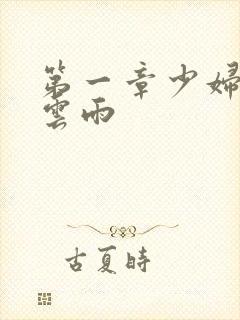 第一章少婦
雲雨
古夏時